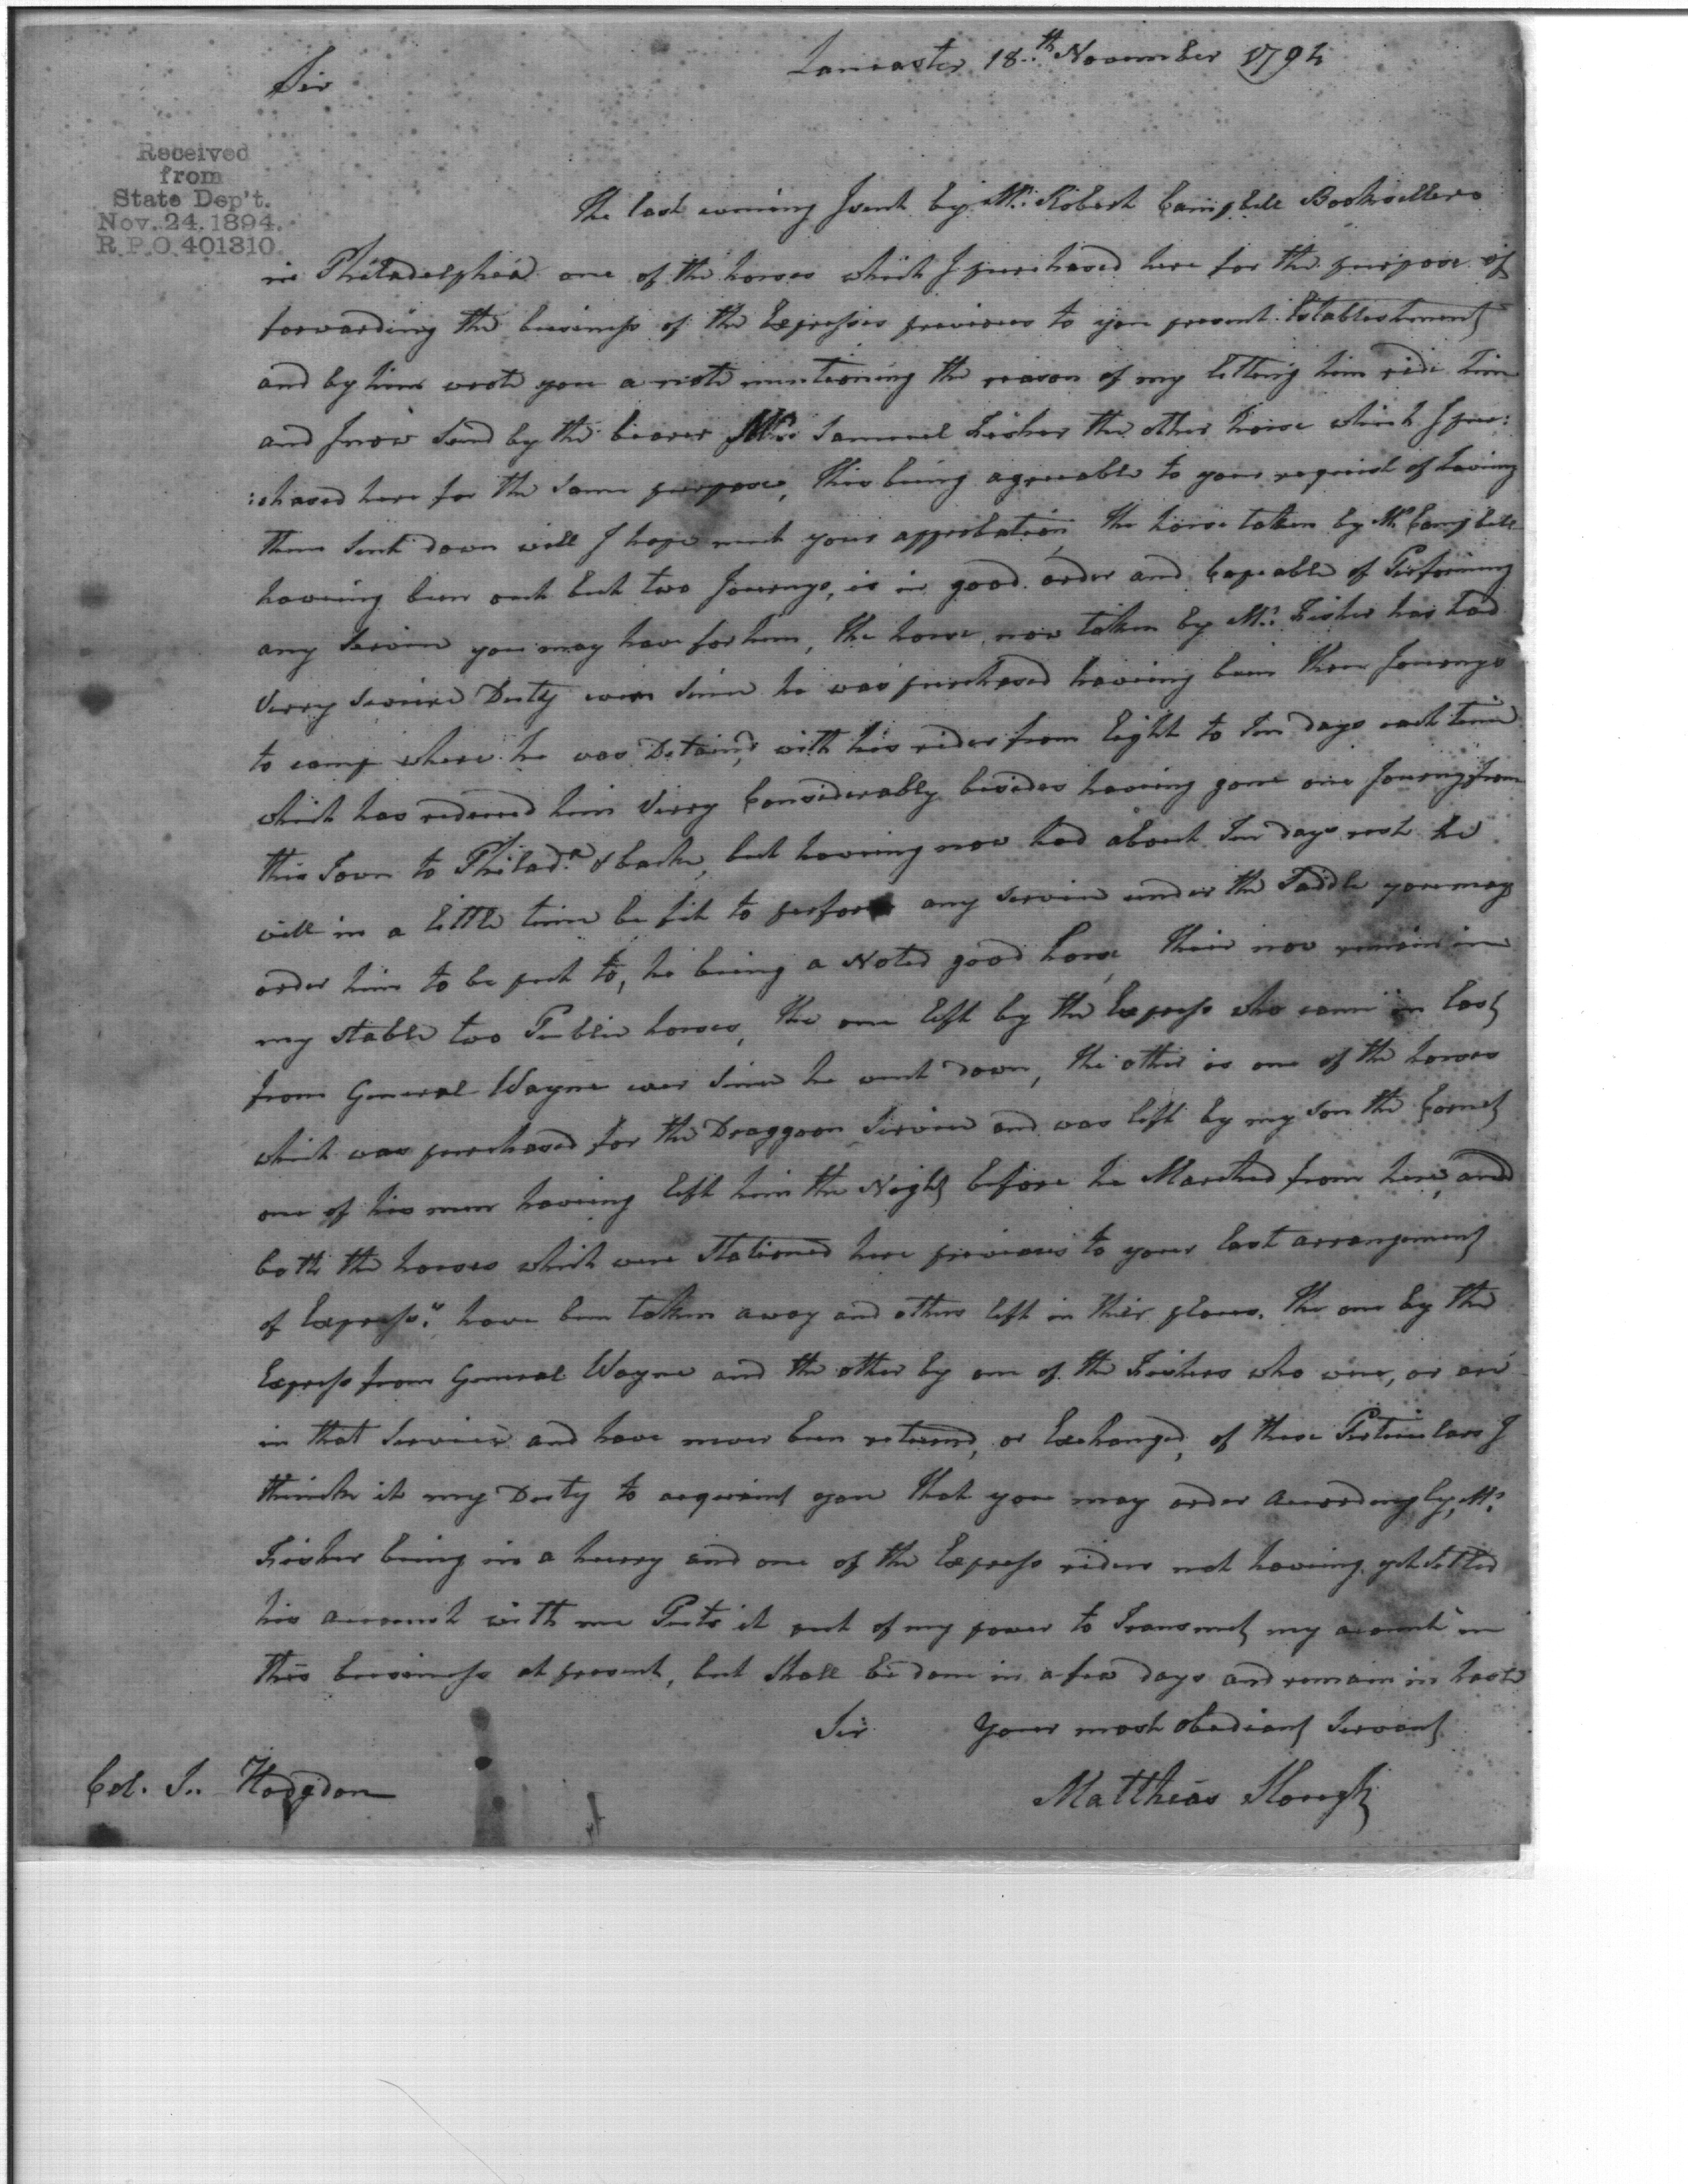 Lancaster 18.th November 1794
Sir
Received
from
State Dep't.
Nov. 24. 1894.
R.P.O. 401310.
The last evening I sent by Mr. Robert Campbell Bookseller
in Philadelphia one of the horses which I purchased here for the purpose of
forwarding the business of the Expresses previous to your present Establishment
and by him wrote you a note mentioning the reason of my letting him ride him
and I now send by the bearer Mr. Samuel Fisher the other horse which I pur:
:chased here for the same purpose, this being agreeable to your request of having
them sent down will I hope meet your approbation, the horse taken by Mr. Campbell
haveing been out but two Journeys, is in good order and Capeable of Performing
any Service you may have for him, the horse now taken by Mr. Fisher has had
verry severe Duty ever since he was purchased haveing been three Journeys
to camp where he was Detain'd, with his rider from Eight to Ten days each time
which has reduced him verry Considerably besides having gone one Journey from
this Town to Philad.a & back, but haveing now had about Ten days rest he
will in a little time be fit to perform any service under the Saddle you may
order him to be put to, he being a Noted good horse, their now remain in
my stable two Publick horses, the one left by the Express who came in last
from General Wayne ever since he went down, the other is one of the horses
which was purchased for the Draggoon Service and was left by my son the Cornet
one of his men haveing left him the Night before he Marched from here, and
both the horses which were Stationed here previous to your last arrangement
of Express.s have been taken away and others left in their places. the one by the
Express from General Wayne and the other by one of the Fishers who were, or are
in that Service and have never been returned, or Exchanged, of these Perticulars I
think it my Duty to acquaint you that you may order accordingly, Mr.
Fisher being in a hurry and one of the Express riders not having yet settled
his account with me Puts it out of my power to Transmit my account on
this business at present, but shall be done in a few days and remain in haste
Sir Your most obediant Servant
Matthias Slough
Col. S. Hodgdon